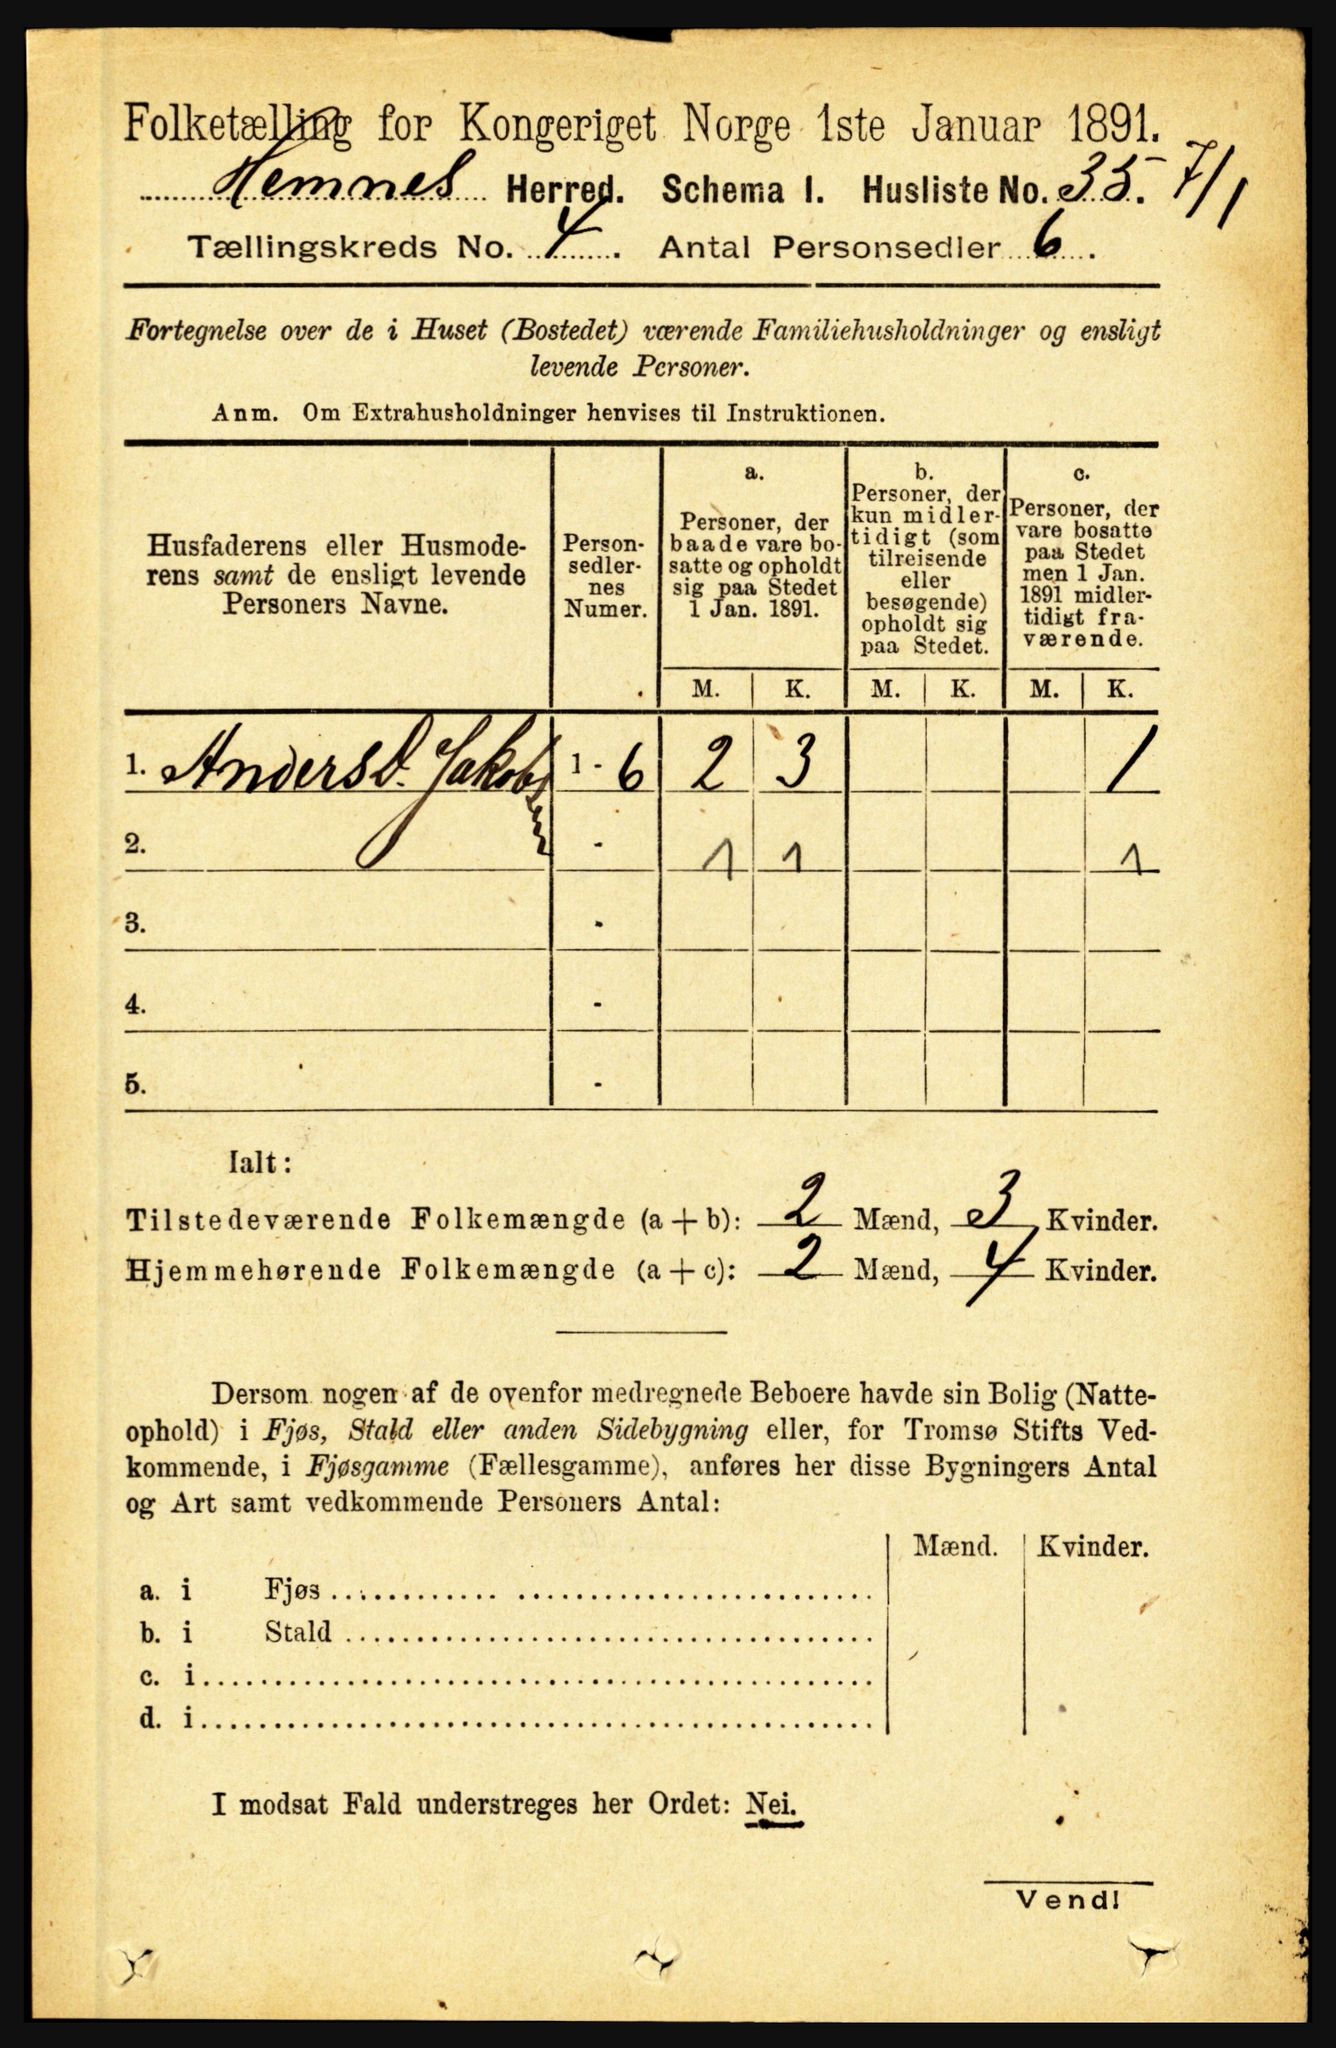 Folketælling for Kongeriget Norge 1ste Januar 1891.
Hemnes Herred. Schema 1. Husliste No. 35. 7/1
Tællingskreds No. 4. Antal Personsedler 6.
Fortegnelse over de i Huset (Bostedet) værende Familiehusholdninger og ensligt
levende Personer.
Anm. Om Extrahusholdninger henvises til Instruktionen.
Husfaderens eller Husmode-
rens samt de ensligt levende
Personers Navne.
Person-
sedler-
nes
Numer.
a.
Personer, der
baade vare bo-
satte og opholdt
sig paa Stedet
1 Jan. 1891.
b.
Personer, der
kun midler-
tidigt (som
tilreisende
eller
besøgende)
opholdt sig
paa Stedet.
c.
Personer, der
vare bosatte
paa Stedet
men 1 Jan.
1891 midler-
tidigt fra-
værende.
M. K. M. K. M. K.
1. Anders D. Jakobsen 1 - 6 2 3 1
2. - 1 1 1
3. -
4. -
5. -
Ialt:
Tilstedeværende Folkemængde (a + b): 2 Mænd, 3 Kvinder.
Hjemmehørende Folkemængde (a + c): 2 Mænd, 4 Kvinder.
Dersom nogen af de ovenfor medregnede Beboere havde sin Bolig (Natte-
ophold) i Fjøs, Stald eller anden Sidebygning eller, for Tromsø Stifts Ved-
kommende, i Fjøsgamme (Fællesgamme), anføres her disse Bygningers Antal
og Art samt vedkommende Personers Antal:
Mænd. Kvinder.
a. i Fjøs
b. i Stald
c. i
d. i
I modsat Fald understreges her Ordet: Nei.
Vend!